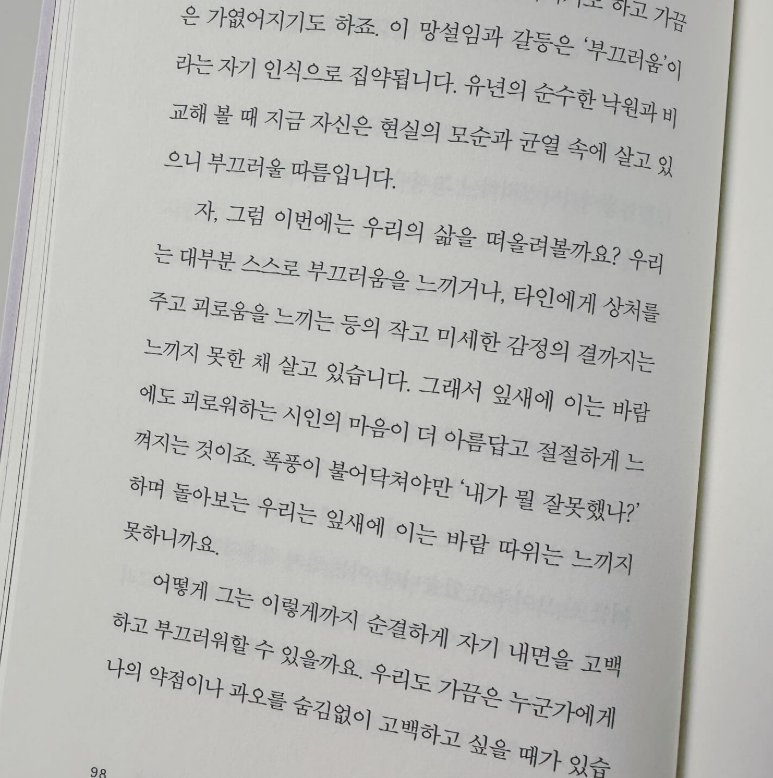 하고 가끔
은 가엾어지기도 하죠. 이 망설임과 갈등은 ‘부끄러움’이
라는 자기 인식으로 집약됩니다. 유년의 순수한 낙원과 비
교해 볼 때 지금 자신은 현실의 모순과 균열 속에 살고 있
으니 부끄러울 따름입니다.
자, 그럼 이번에는 우리의 삶을 떠올려볼까요? 우리
는 대부분 스스로 부끄러움을 느끼거나, 타인에게 상처를
주고 괴로움을 느끼는 등의 작고 미세한 감정의 결까지는
느끼지 못한 채 살고 있습니다. 그래서 잎새에 이는 바람
에도 괴로워하는 시인의 마음이 더 아름답고 절절하게 느
껴지는 것이죠. 폭풍이 불어닥쳐야만 ‘내가 뭘 잘못했나?’
하며 돌아보는 우리는 잎새에 이는 바람 따위는 느끼지
못하니까요.
어떻게 그는 이렇게까지 순결하게 자기 내면을 고백
하고 부끄러워할 수 있을까요. 우리도 가끔은 누군가에게
나의 약점이나 과오를 숨김없이 고백하고 싶을 때가 있습
98